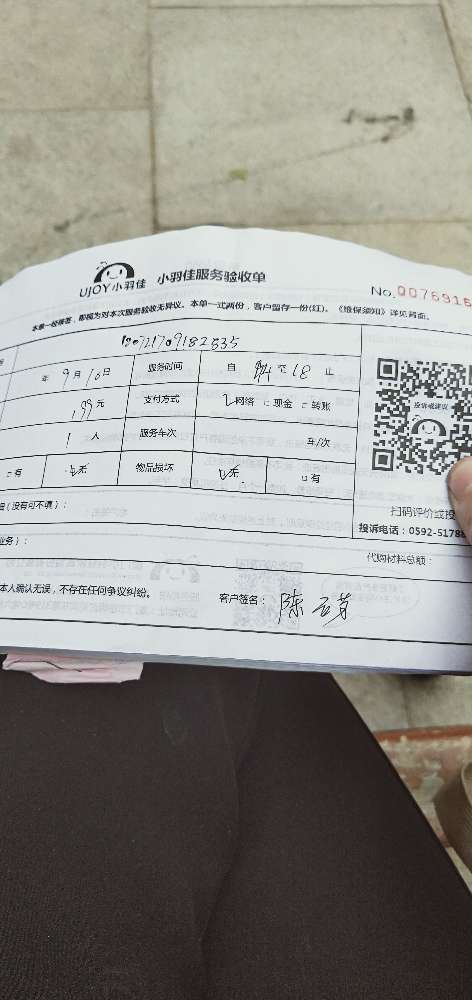 UJOY小羽佳 小羽佳服务验收单
No.0076916
本单一经签签，即视为对本次服务验收无异议。本单一式两份，客户留存一份(红)。《维保须知》详见背面。
年9月10日 服务时间 自 至18止
199元 支付方式 网络 □现金 □转账
1人 服务车次 车/次
□有 无 物品损坏 无 □有
投诉或建议
(没有可不填)：
扫码评价或投
投诉电话：0592-5178
业务)：
代购材料总额：
本人确认无误，不存在任何争议纠纷。
客户签名：陈云芽